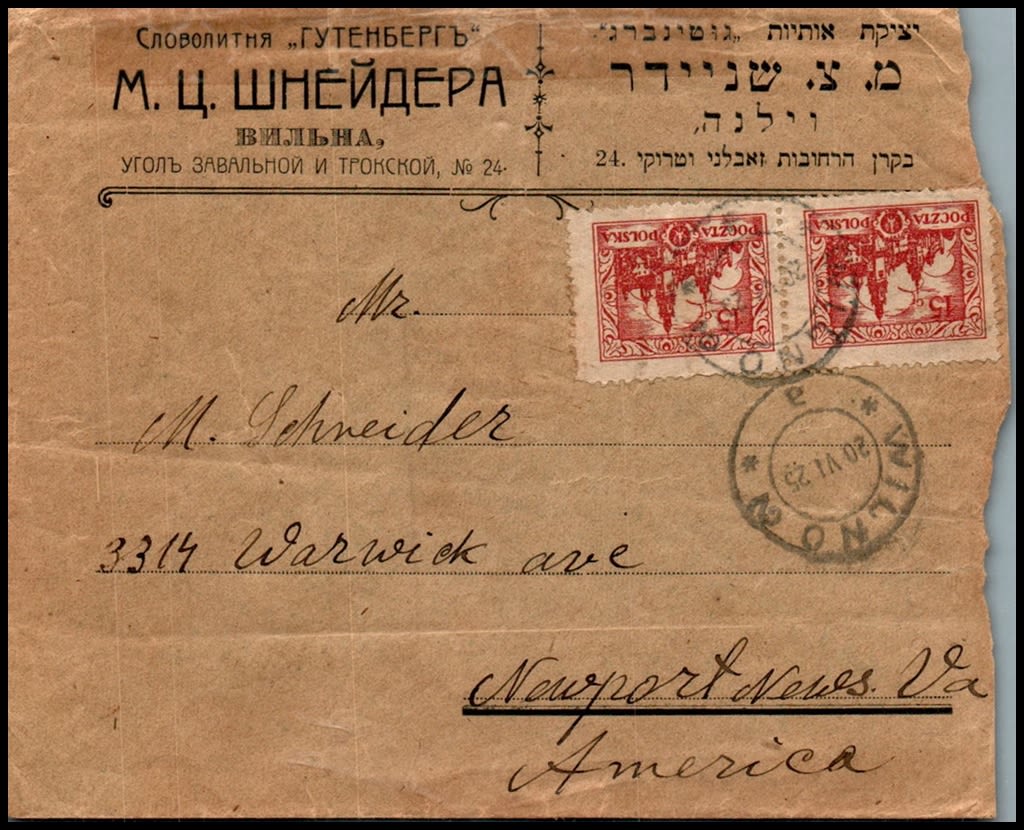 Словолитня „ГУТЕНБЕРГЪ“
М. Ц. ШНЕЙДЕРА
ВИЛЬНА,
УГОЛЪ ЗАВАЛЬНОЙ И ТРОКСКОЙ, № 24.
יציקת אותיות „גוטינברג“
מ. צ. שניידר
ווילנה,
בקרן הרחובות זאבלני וטרוקי 24.
POCZTA POLSKA
15
POCZTA POLSKA
15
WILNO 2
WILNO 2
a
20 VI 25
Mr.
M. Schneider
3314 Warwick ave
Newport News. Va
America